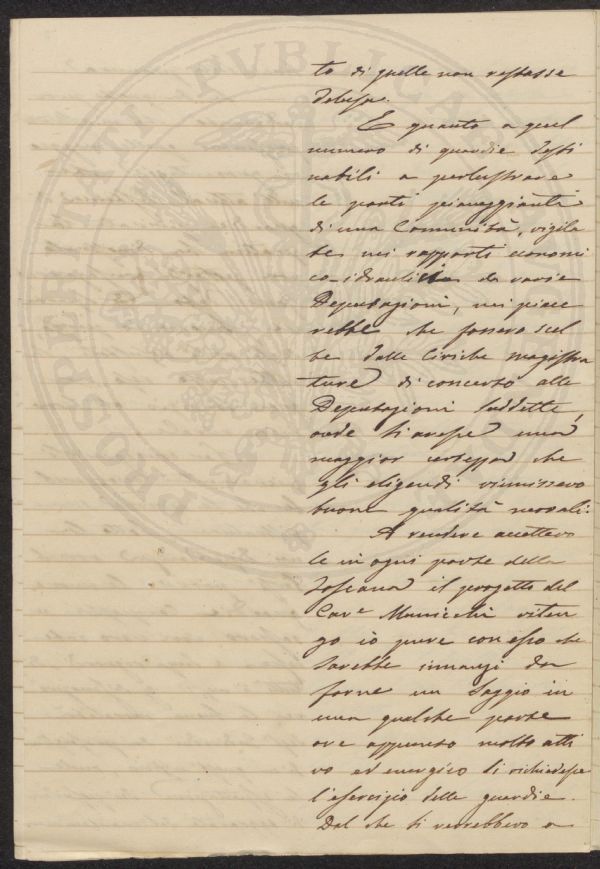 to di quelle non restasse
delusa.
E quanto a quel
numero di guardie desti
nabili a perlustrare
le parti pianeggianti
di una Comunità, vigila
te nei rapporti economi
co-idraulici da varie
Deputazioni, mi piace
rebbe che fossero scel
te dalle Civiche magistra
ture di concerto alle
Deputazioni suddette,
onde si avesse una
maggior certezza che
gli eligendi riunissero
buone qualità morali.
A rendere accettevo
le in ogni parte della
Toscana il progetto del
Cav.e riten
go io pure con esso che
sarebbe innanzi da
farne un Saggio in
una qualche parte
ove appunto molto atti
vo ed energico si richiedesse
l'esercizio delle guardie.
Dal che si verrebbero a